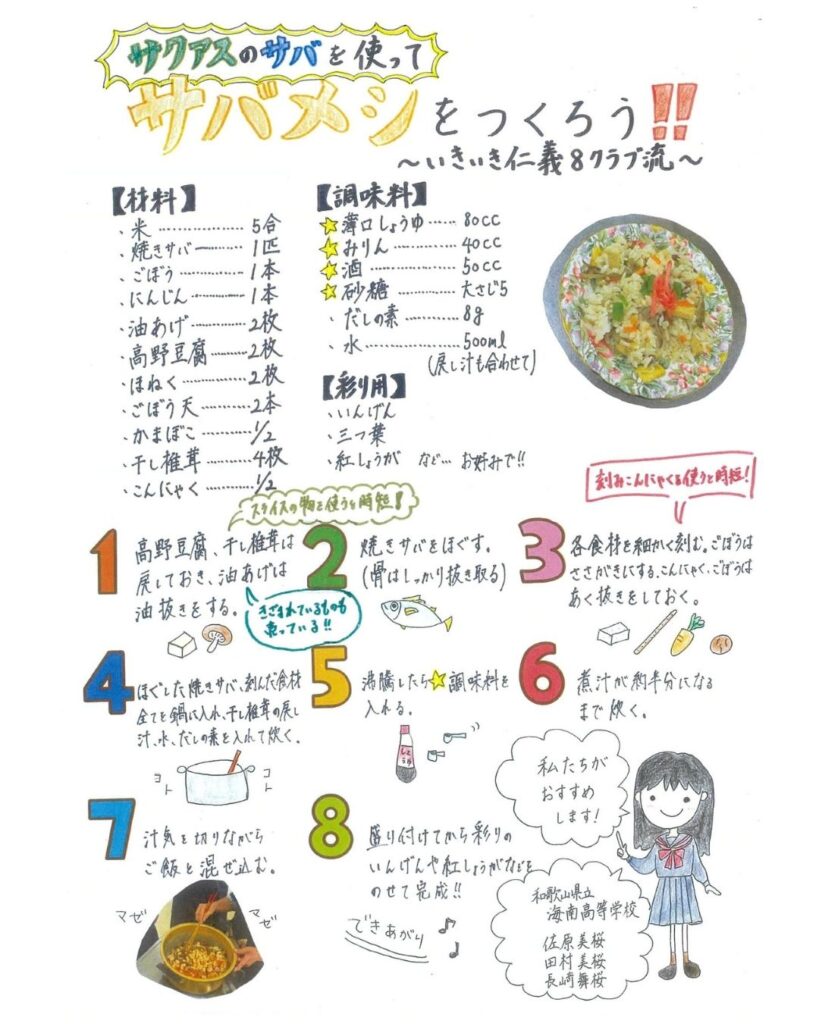 サクアスのサバを使って
サバメシをつくろう!!
〜いきいき仁義8クラブ流〜
【材料】
・米………………5合
・焼きサバ………1匹
・ごぼう…………1本
・にんじん………1本
・油あげ…………2枚
・高野豆腐………2枚
・ほねく…………2枚
・ごぼう天………2本
・かまぼこ………1/2
・干し椎茸………4枚
・こんにゃく……1/2
【調味料】
☆薄口しょうゆ……80cc
☆みりん……………40cc
☆酒…………………50cc
☆砂糖………………大さじ5
・だしの素…………8g
・水…………………500ml
(戻し汁も合わせて)
【彩り用】
・いんげん
・三つ葉
・紅しょうが など… お好みで!!
スライスの物を使うと時短!
刻みこんにゃくを使うと時短!
1
高野豆腐、干し椎茸は
戻しておき、油あげは
油抜きをする。
きざまれているものも
売っている!!
2
焼きサバをほぐす。
(骨はしっかり抜き取る)
3
各食材を細かく刻む。ごぼうは
ささがきにする、こんにゃく、ごぼうは
あく抜きをしておく。
4
ほぐした焼きサバ、刻んだ食材
全てを鍋に入れ、干し椎茸の戻し
汁、水、だしの素を入れて炊く。
コト
コト
5
沸騰したら☆調味料を
入れる。
しょうゆ
6
煮汁が約半分になる
まで炊く。
7
汁気を切りながら
ご飯と混ぜ込む。
マゼ
マゼ
8
盛り付けてから彩りの
いんげんや紅しょうがなどを
のせて完成!!
できあがり
私たちが
おすすめ
します!
和歌山県立
海南高等学校
佐原美桜
田村美桜
長崎舞桜